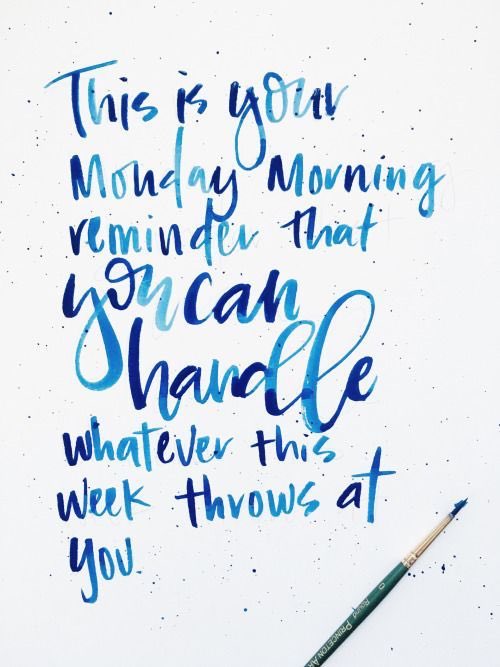 This is your
Monday Morning
reminder that
you can
handle
whatever this
week throws at
you.
0
Round PRINCETON